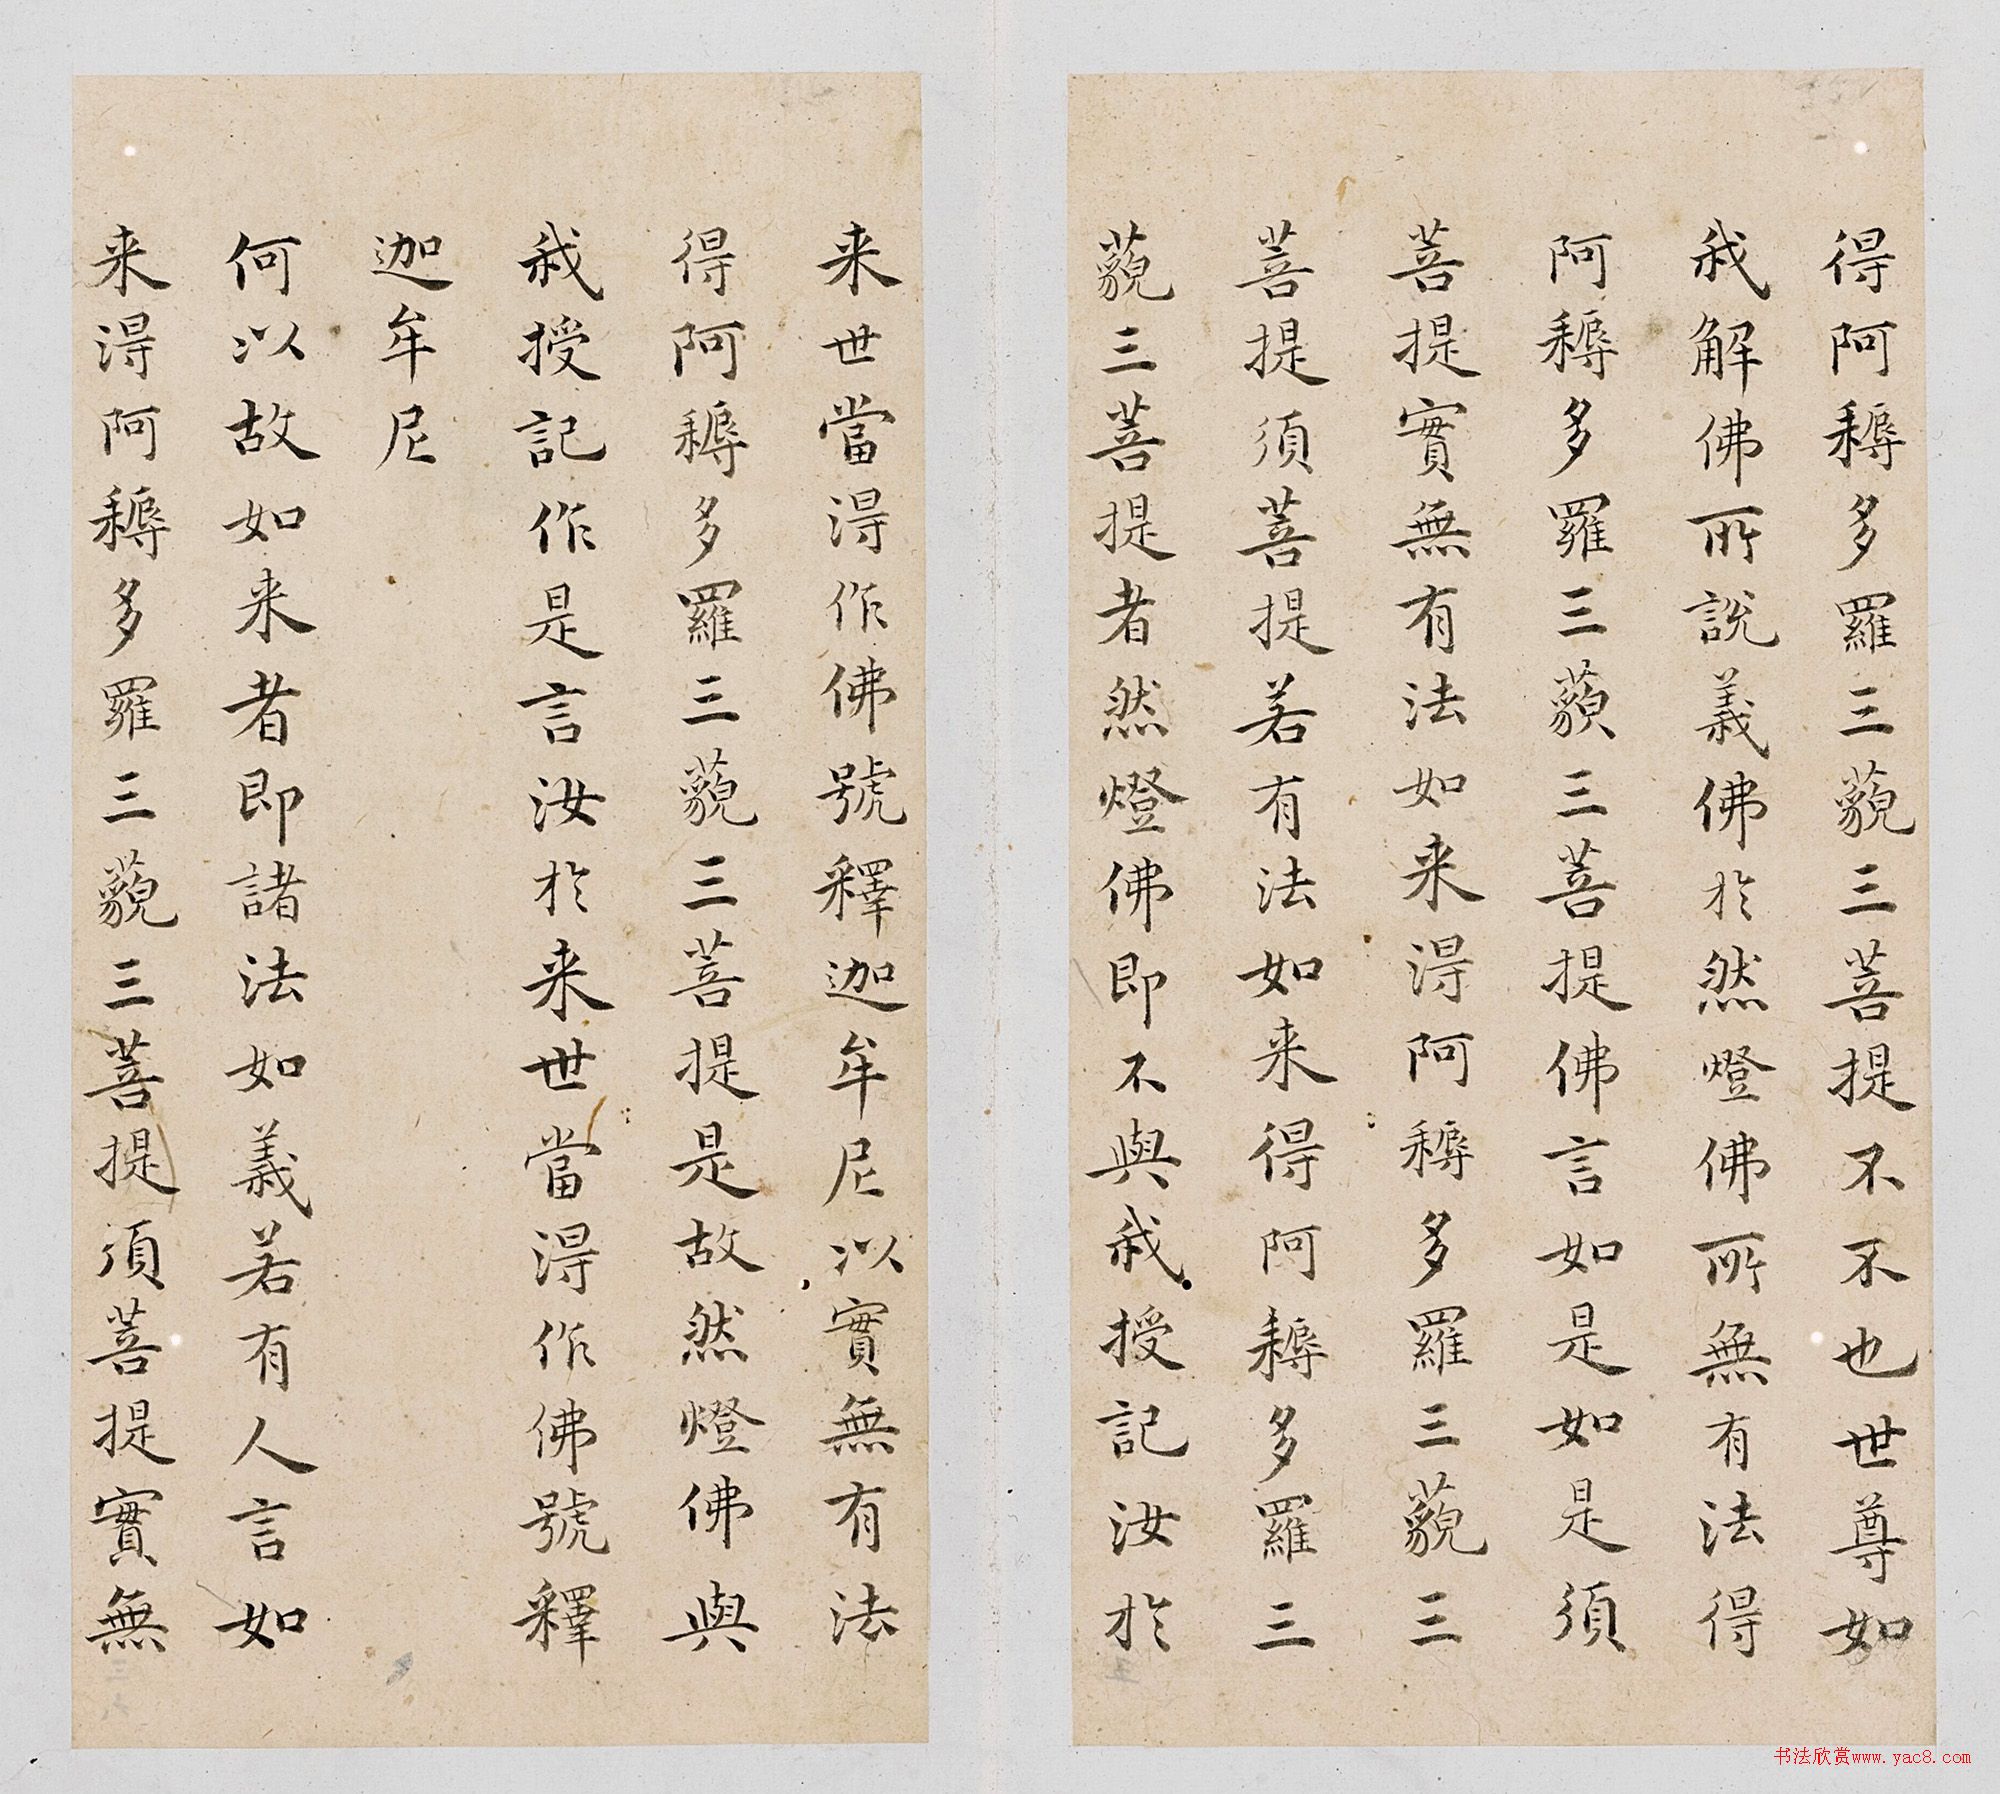 得阿耨多羅三藐三菩提不不也世尊如
我解佛所說義佛於然燈佛所無有法得
阿耨多羅三藐三菩提佛言如是如是須
菩提實無有法如来得阿耨多羅三藐三
菩提須菩提若有法如来得阿耨多羅三
藐三菩提者然燈佛即不與我授記汝於
来世當得作佛號釋迦牟尼以實無有法
得阿耨多羅三藐三菩提是故然燈佛與
我授記作是言汝於来世當得作佛號釋
迦牟尼
何以故如来者即諸法如義若有人言如
来得阿耨多羅三藐三菩提須菩提實無
书法欣赏www.yac8.com